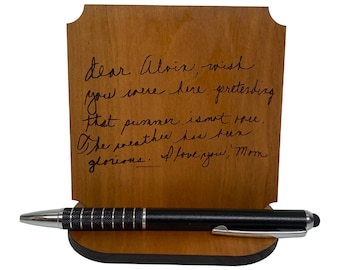 Dear Alvin, wish
you were here pretending
that summer isn't over.
The weather has been
glorious. I love you, Mom